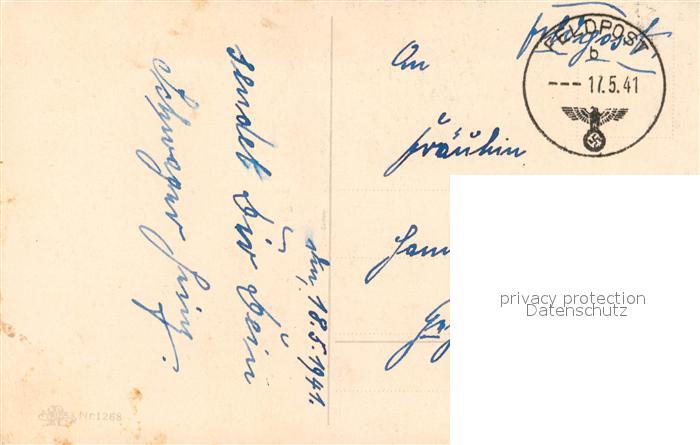 Feldpost
FELDPOST
b
--- 17.5.41
An
Fräulein
privacy protection
Datenschutz
den, 18.5.1941.
sendet Dir Dein
Schwager
Nr.1268